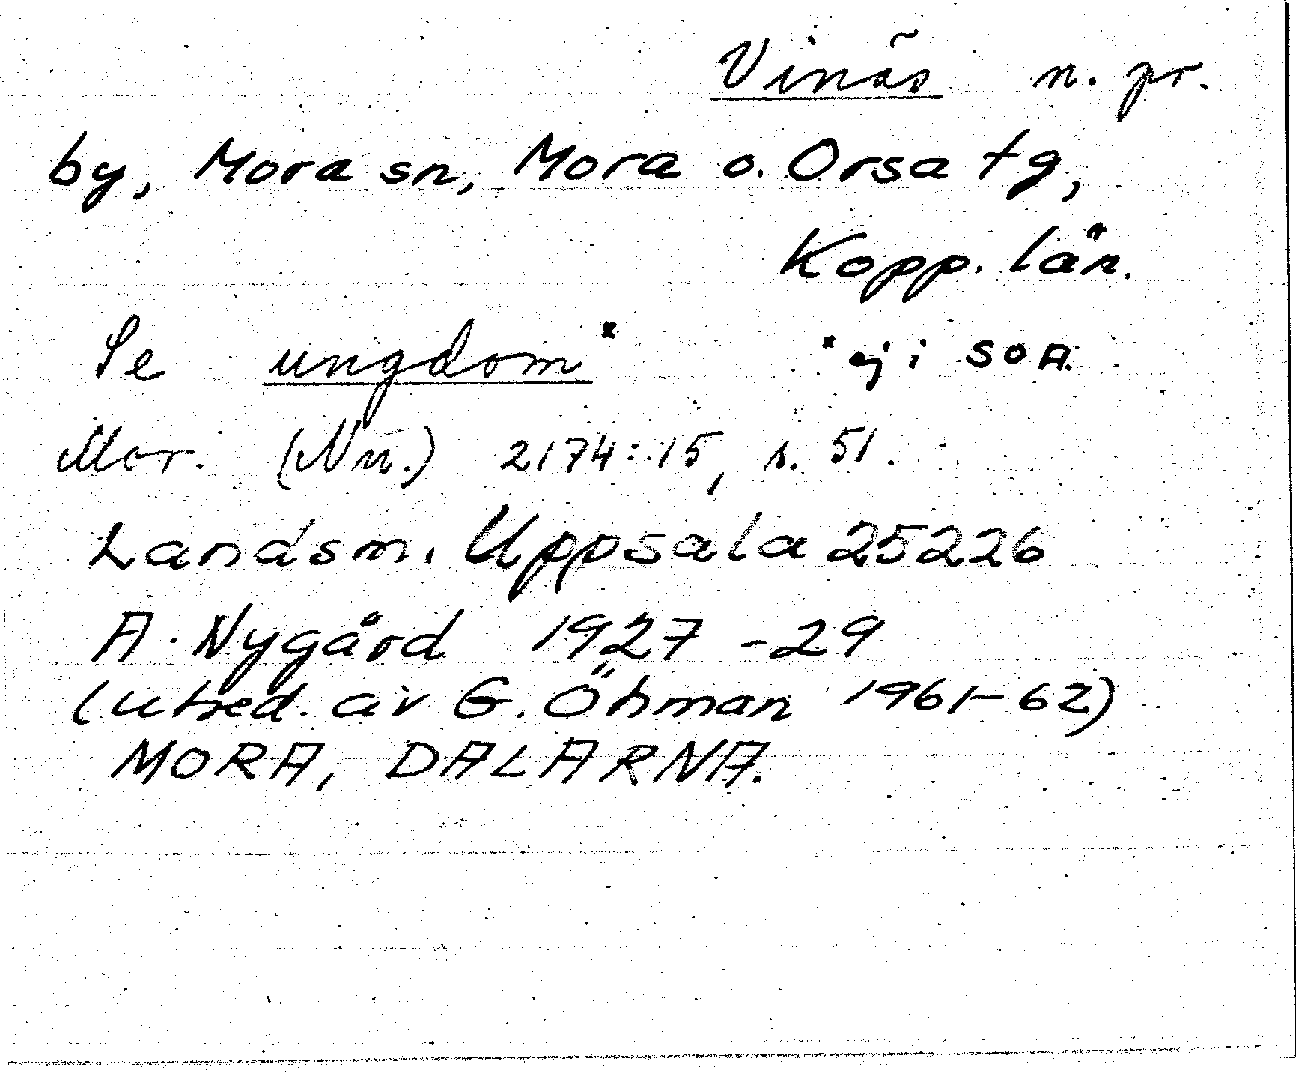 Vinäs n. pr.
by, Mora sn, Mora o. Orsa tg,
Kopp. län.
Se ungdom* *ej i SOA.
Mor. (Nu.) 2174:15, s. 51.
Landsm. Uppsala 25226
A. Nygård 1927 -29
(utred. av G. Öhman 1961-62)
MORA, DALARNA.